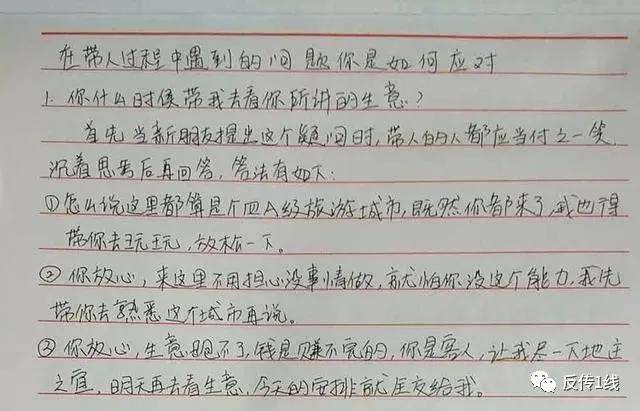 在带人过程中遇到的问题你是如何应对
1. 你什么时候带我去看你所讲的生意?
首先当新朋友提出这个疑问时,带人的人都应当付之一笑,
沉着思考后再回答,答法有如下:
①怎么说这里都算是个四A级旅游城市,既然你都来了,我也得
带你去玩玩,放松一下。
②你放心,来这里不用担心没事情做,就怕你没这个能力,我先
带你去熟悉这个城市再说。
③你放心,生意跑不了,钱是赚不完的,你是客人,让我尽一下地主
之宜,明天再去看生意,今天的安排就全交给我。
反传1线